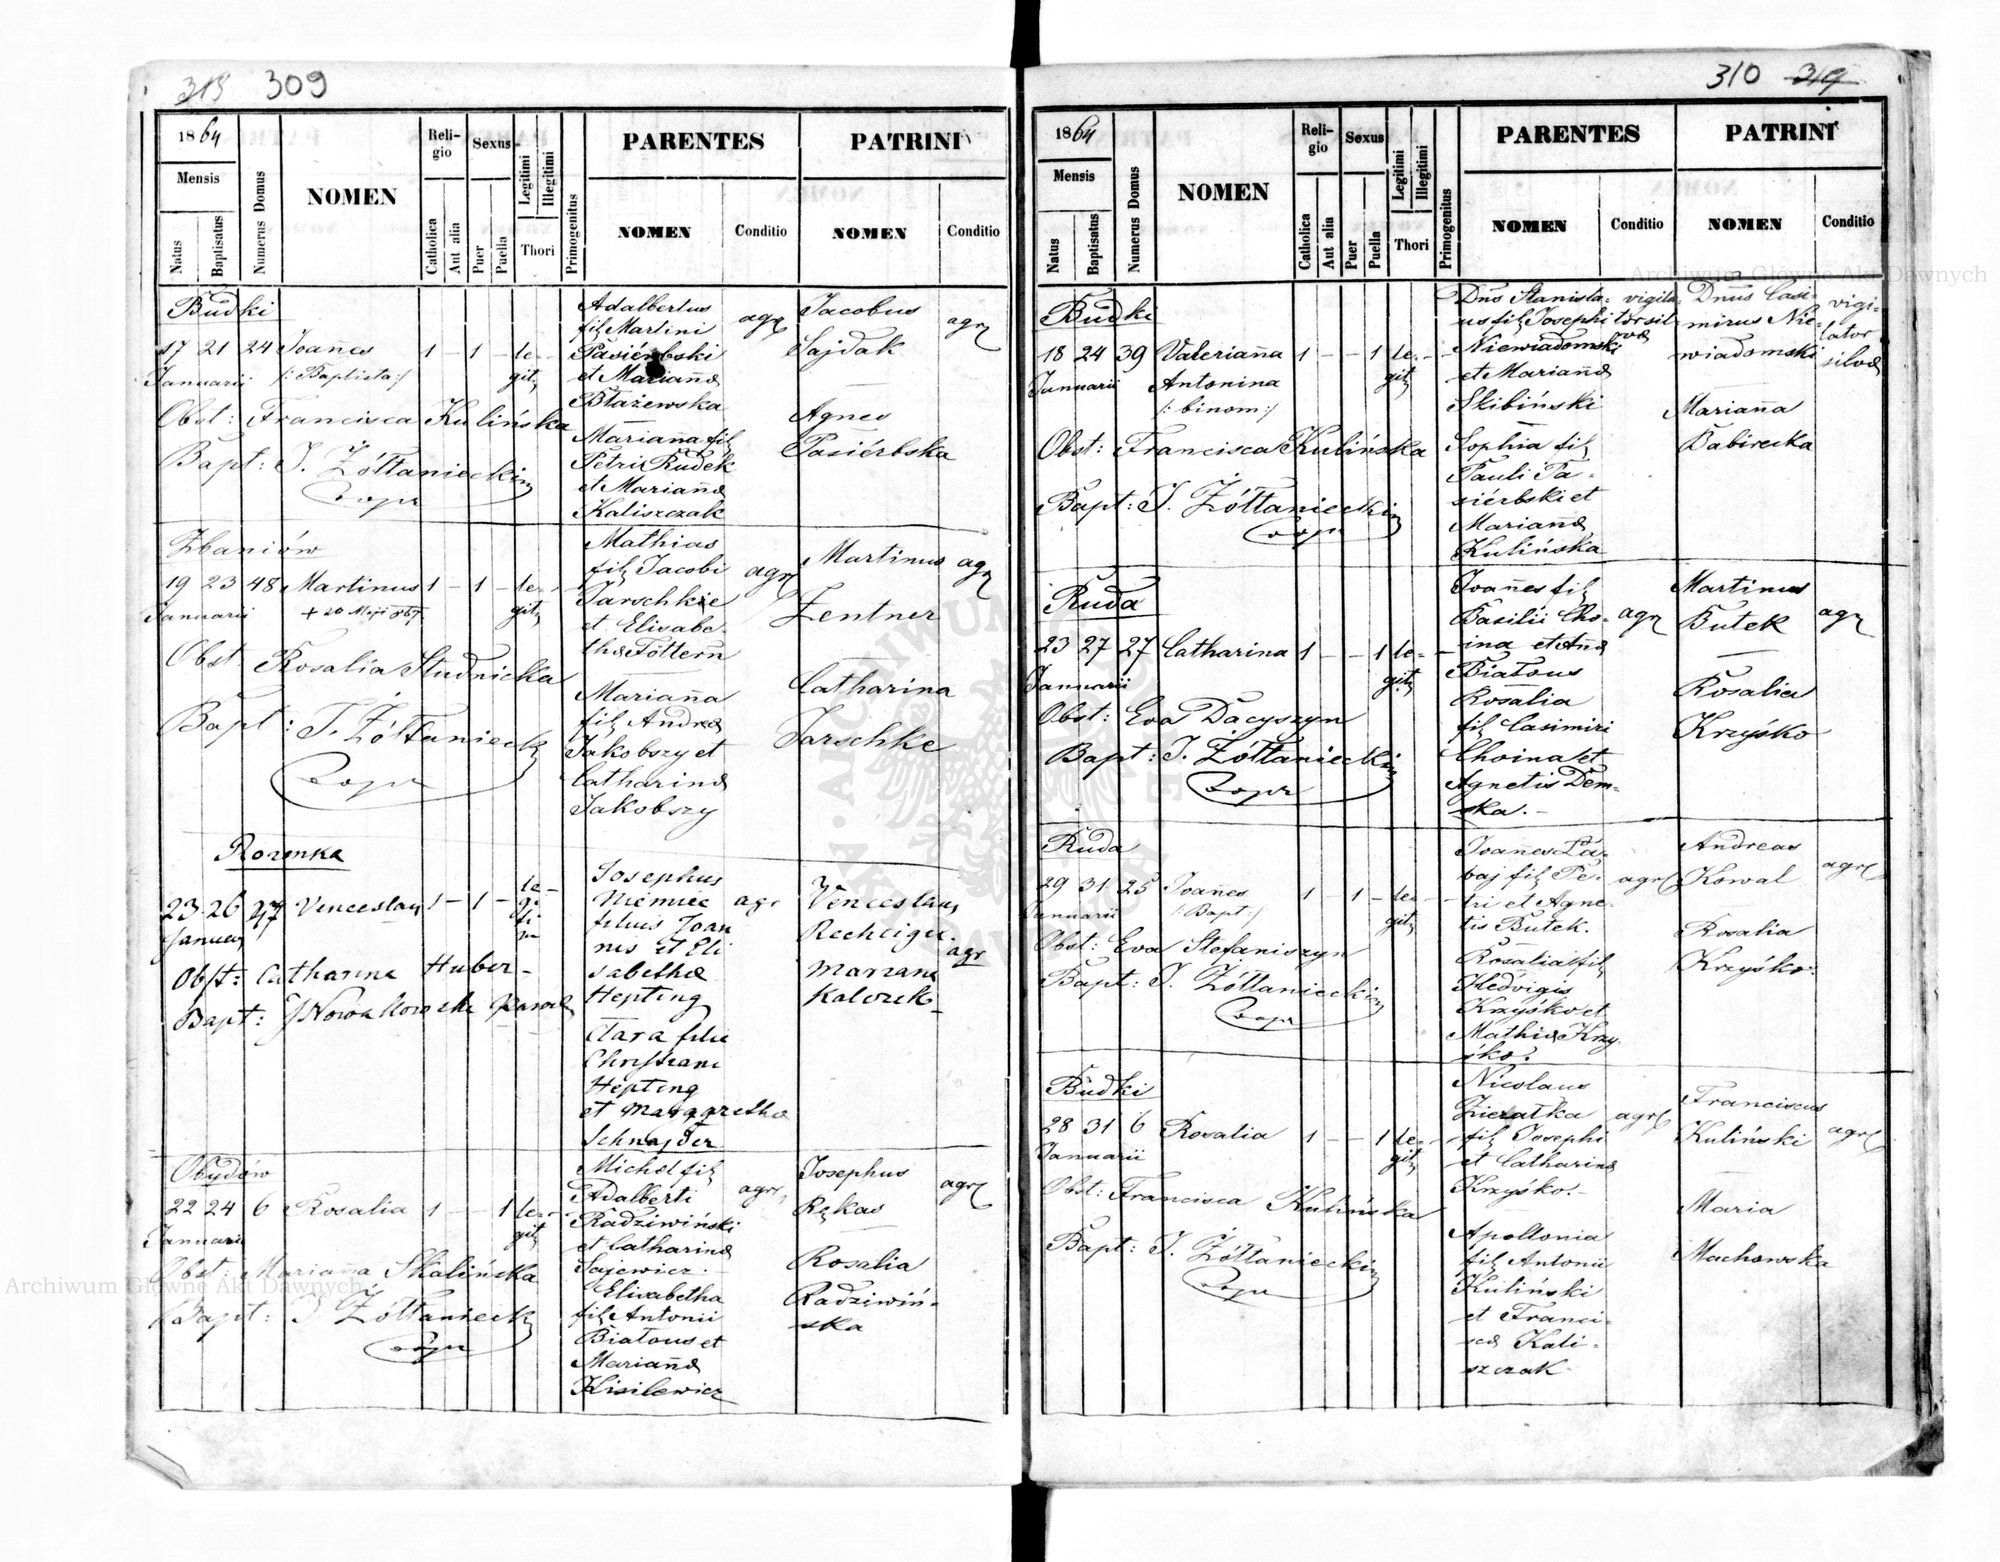 318 309
1864
Mensis
Natus
Baptisatus
Numerus Domus
NOMEN
Religio
Catholica
Aut alia
Sexus
Puer
Puella
Legitimi
Illegitimi
Thori
Primogenitus
PARENTES
NOMEN
Conditio
PATRINI
NOMEN
Conditio
Budki
17 21 24 Joañes 1 – 1 – le-
Januarii /: Baptista :/ gitz
Obst: Francisca Kulińska
Bapt: J. Żółtaniecki
Coopr
Adalbertus
filz Martini
Pasiérbski
et Mariañæ
Błażewska
Mariaña filz
Petri Rudek
et Mariañæ
Kaliszczak
agrz
Jacobus
Sajdak
Agnes
Pasiérbska
agrz
Zbaniów
19 23 48 Martinus 1 – 1 – le-
Januarii + 20 Maji 867 gitz
Obst. Rosalia Studnicka
Bapt: J. Żółtaniecki
Coopr
Mathias
filz Jacobi
Jarschkie
et Elisabe-
thæ Föttern
Mariaña
filz Andræ
Jakobszy et
Catharinæ
Jakobszy
agrz
Martinus
Zentner
Catharina
Jarschke
agrz
Rozenka
23 26 27 Venceslaus 1 – 1 – le-
Januar gi
ti
Obst: Catharina Huber
Bapt: J Nowakowski
Josephus
Niemiec
filius Joan
nis et Eli
sabethæ
Hepting
Clara filia
Christiani
Hepting
et Margarethæ
Schnajder
agr
Venceslaus
Mariana
agr
Obydów
22 24 6 Rosalia 1 – – 1 le-
Januarii gitz
Obst: Mariaña Skalińska
Bapt: J Żółtaniecki
Coopr
Michol filz
Adalberti
Radziwiński
et Catharinæ
Sajewicz.
Elisabetha
filz Antonii
Białous et
Mariañæ
Kisilewicz
agrz
Josephus
Rękas
Rosalia
Radziwiń-
ska
agrz
310 319
1864
Mensis
Natus
Baptisatus
Numerus Domus
NOMEN
Religio
Catholica
Aut alia
Sexus
Puer
Puella
Legitimi
Illegitimi
Thori
Primogenitus
PARENTES
NOMEN
Conditio
PATRINI
NOMEN
Conditio
Budki
18 24 39 Valeriaña 1 – – 1 le-
Januarii Antonina gitz
/: binom :/
Obst: Francisca Kulińska
Bapt: J. Żółtaniecki
Coopr
Dñs Stanisla-
us filz Josephi
Niewiadomski
et Mariañæ
Skibiński
Sophia filz
Pauli Pa-
siérbski et
Mariañæ
Kulińska
vigila-
tor sil-
væ
Dnus Casi-
mirus Nie-
wiadomski
Mariaña
Babirecka
vigi-
lator
silvæ
Ruda
23 27 27 Catharina 1 – – 1 le-
Januarii gitz
Obst: Eva Dacyszyn
Bapt: J. Żółtaniecki
Coopr
Joañes filz
Basilii Cho-
ina et Añæ
Białous
Rosalia
filz Casimiri
Choina et
Agnetis Dem-
ska. –
agrz
Martinus
Butek
Rosalia
Krzyśko
agrz
Ruda
29 31 25 Joañes 1 – 1 – le-
Januarii /: Bapt :/ gitz
Obst: Eva Stefaniszyn
Bapt: J. Żółtaniecki
Coopr
Joañes Ła-
baj filz Pe-
tri et Agne-
tis Butek.
Rosalia filz
Hedvigis
Krzyśko et
Mathiæ Krzy-
śko.
agrz
Andreas
Kowal
Rosalia
Krzyśko
agrz
Budki
28 31 6 Rosalia 1 – – 1 le-
Januarii gitz
Obst: Francisca Kulińska
Bapt: J. Żółtaniecki
Coopr
Nicolaus
Zieratka
filz Josephi
et Catharinæ
Krzyśko. –
Apollonia
filz Antonii
Kuliński
et Franci-
scæ Kali-
szczak
agrz
Franciscus
Kuliński
Maria
Machowska
agrz
Archiwum Główne Akt Dawnych
Archiwum Główne Akt Dawnych